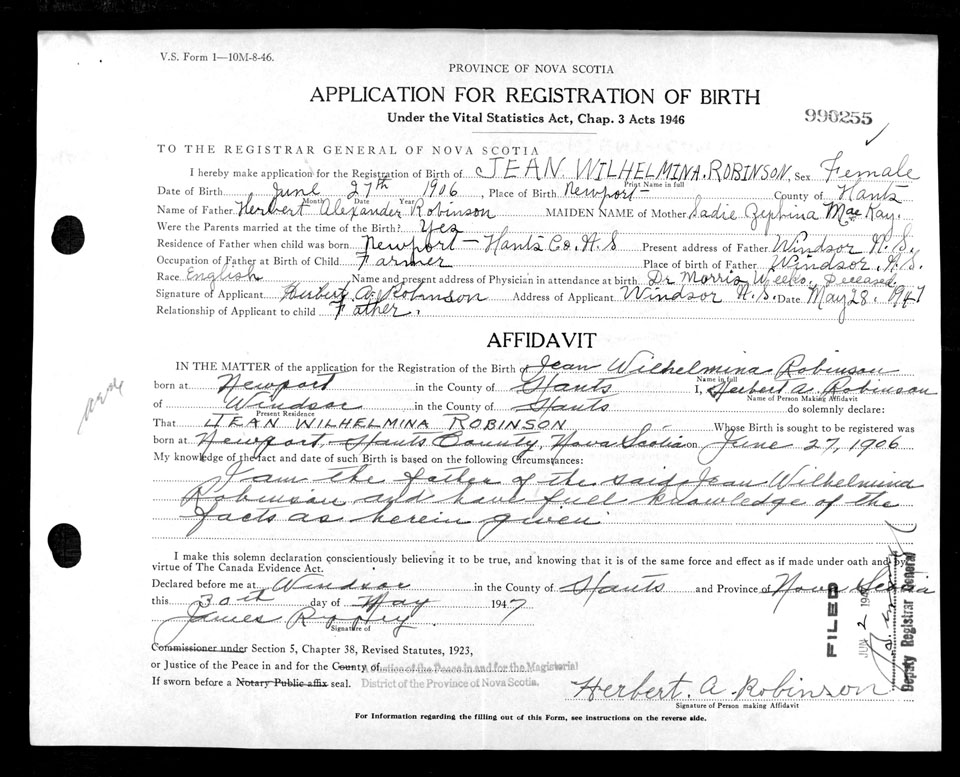 V.S. Form 1—10M-8-46.
PROVINCE OF NOVA SCOTIA
APPLICATION FOR REGISTRATION OF BIRTH
Under the Vital Statistics Act, Chap. 3 Acts 1946
990255
TO THE REGISTRAR GENERAL OF NOVA SCOTIA
I hereby make application for the Registration of Birth of JEAN WILHELMINA ROBINSON, Sex Female
Print Name in full
Date of Birth June 27th 1906, Place of Birth Newport County of Hants
Month Date Year
Name of Father Herbert Alexander Robinson MAIDEN NAME of Mother Sadie Zephina MacKay.
Were the Parents married at the time of the Birth? Yes
Residence of Father when child was born Newport - Hants Co. N.S Present address of Father Windsor N.S.
Occupation of Father at Birth of Child Farmer Place of birth of Father Windsor, N.S.
Race English Name and present address of Physician in attendance at birth Dr Morris Weeks, Deceased
Signature of Applicant Herbert A. Robinson Address of Applicant Windsor N.S. Date May 28. 1947
Relationship of Applicant to child Father.
AFFIDAVIT
IN THE MATTER of the application for the Registration of the Birth of Jean Wilhelmina Robinson
Name in full
born at Newport in the County of Hants I, Herbert A. Robinson
Name of Person Making Affidavit
of Windsor in the County of Hants do solemnly declare:
Present Residence
That JEAN WILHELMINA ROBINSON Whose Birth is sought to be registered was
born at Newport, Hants County, Nova Scotia on June 27, 1906
My knowledge of the fact and date of such Birth is based on the following Circumstances:
I am the father of the said Jean Wilhelmina
Robinson and have full knowledge of the
facts as herein given
I make this solemn declaration conscientiously believing it to be true, and knowing that it is of the same force and effect as if made under oath and by
virtue of The Canada Evidence Act.
Declared before me at Windsor in the County of Hants and Province of Nova Scotia
this 30th day of May 1947
James
Signature of
Commissioner under Section 5, Chapter 38, Revised Statutes, 1923,
or Justice of the Peace in and for the County of Justice of the Peace in and for the Magisterial
If sworn before a Notary Public affix seal. District of the Province of Nova Scotia.
Herbert. A. Robinson
Signature of Person making Affidavit
For Information regarding the filling out of this Form, see instructions on the reverse side.
FILED
JUN 2 1947
Deputy Registrar General